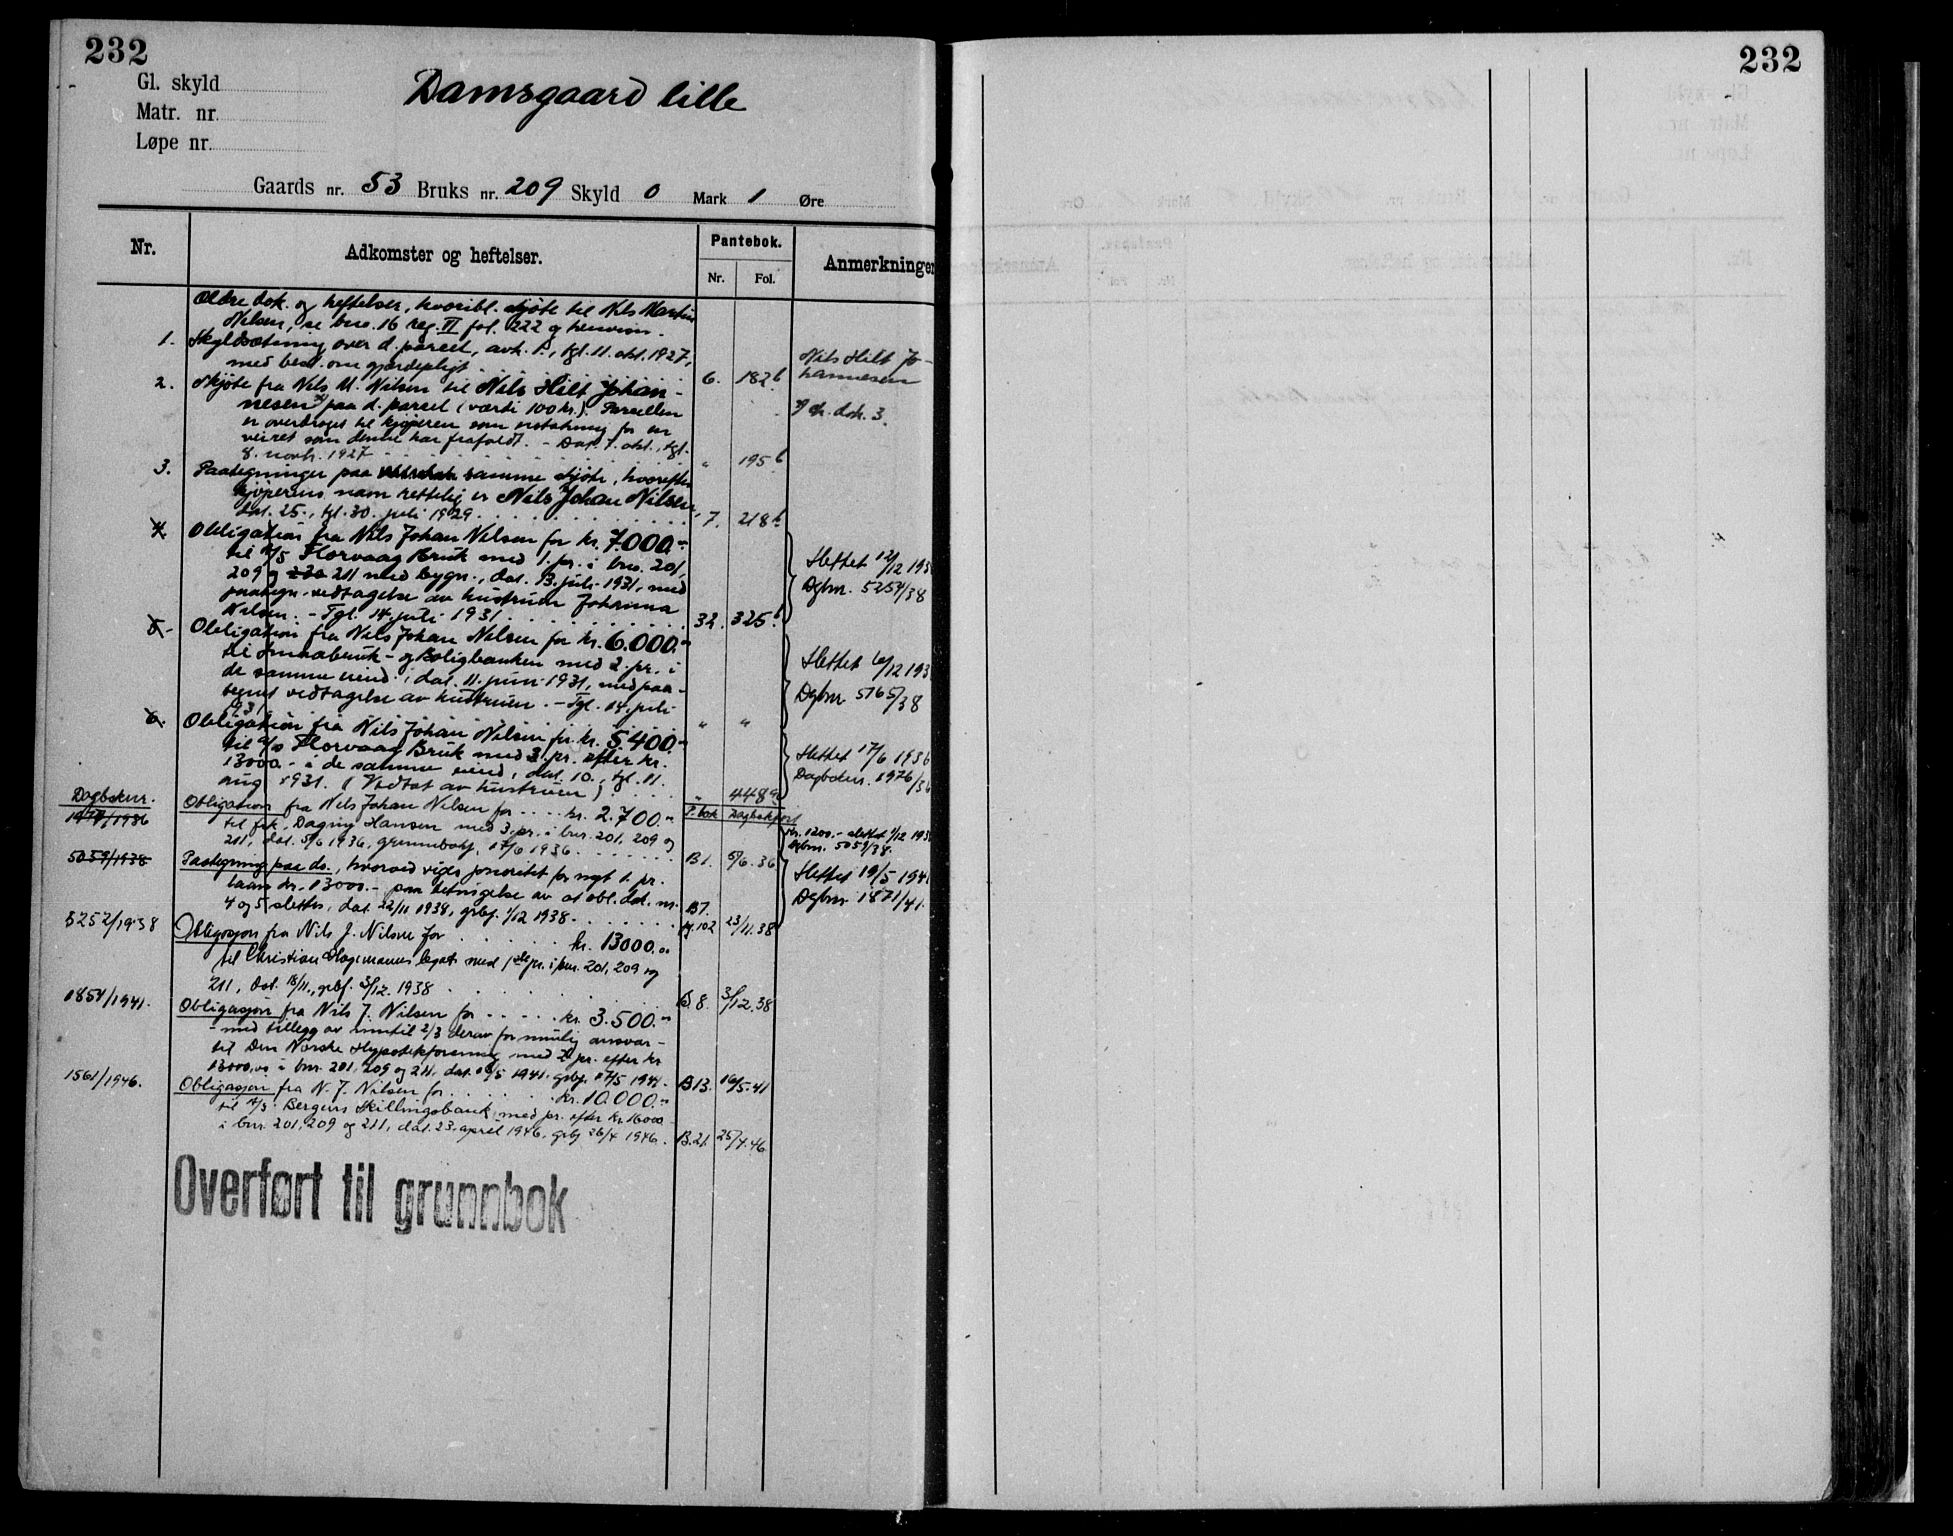 232
Gl. skyld
Matr. nr.
Løpe nr.
Damsgaard lille
Gaards nr. 53 Bruks nr. 209 Skyld 0 Mark 1 Øre
Nr. Adkomster og heftelser. Pantebok. Nr. Fol. Anmerkninger
Ældre dok. og heftelser, hvoribl. skjøte til Nils Martin
Nilsen, se bno. 16 reg. VI fol. 222 og henvisn.
1. Skyldsætning over d. parcel, avh. 1., tgl. 11. okt. 1927,
med best. om gjerdepligt . . . 6. 182 b
Nils Hilt Jo-
hannesen
2. Skjøte fra Nils M. Nilsen til Nils Hilt Johan-
nesen x) paa d. parcel (værdi 100 kr.). Parcellen
x) cfr. dok. 3.
er overdraget til kjøperen som erstatning for en
veiret som denne har frafaldt. - Dat. 7. okt., tgl.
8. novb. 1927 . . . " 195 b
3. Paategninger paa samme skjøte, hvorefter
kjøperens navn rettelig er Nils Johan Nilsen,
dat. 25., tgl. 30. juli 1929 . . . 7. 218 b.
4. Obligation fra Nils Johan Nilsen for kr. 7.000.-
til A/S Florvaag Bruk med 1. pr. i bno. 201,
209 og 230 211 med bygn., dat. 13. juli 1931, med
paategn. vedtagelse av hustruen Johanna
Nilsen. - Tgl. 14. juli 1931 . . . 32. 325 b
Slettet 12/12 193
Dgbnr. 5254/38
5. Obligation fra Nils Johan Nilsen for kr. 6.000.-
til Smaabruk- og Boligbanken med 2. pr. i
de samme eiend., dat. 11. juni 1931, med paa-
tegnet vedtagelse av hustruen. - Tgl. 14. juli
1931 " "
Slettet 6/12 193
Dgbnr. 5165/38
6. Obligation fra Nils Johan Nilsen for kr. 5400.-
til A/S Florvaag Bruk med 3. pr. efter kr.
13000.- i de samme eiend., dat. 10., tgl. 11.
aug. 1931. (Vedtat av hustruen) . . . " 448 a
Slettet 17/6 1936
Dagboknr. 1976/36
Dagboknr. P.bok Dagbokført
1977/1936 Obligation fra Nils Johan Nilsen for . . . kr. 2.700.-
til frk. Dagny Hansen med 3. pr. i bnr. 201, 209 og
211, dat. 5/6 1936, grunnbokf. 17/6 1936 . . . B1. 5/6. 36
Kr. 1200.- slettet 1/12 193
Dgbnr. 5059/38.
5059/1938 Paategning paa do., hvorved viges prioritet for nyt 1. pr.
laan kr. 13000.- paa betingelse av at obl. dok. nr.
4 og 5 slettes, dat. 22/11 1938, grbf. 1/12 1938 . . . B7.
102 23/11. 38
Slettet 19/5 1941
Dgbnr. 1871/41.
5252/1938 Obligasjon fra Nils J. Nilsen for . . . kr. 13000.00
til Christian legat med 1ste pr. i bnr. 201, 209 og
211, dat. 18/11., grbf. 3/12. 1938 . . . B. 8. 3/12. 38
1854/1941. Obligasjon fra Nils J. Nilsen for . . . kr. 3.500.-
- med tillegg av inntil 2/3 derav for mulig ansvar -
til Den Norske Hypotekforening med 2. pr. efter kr
13000,00 i bnr. 201, 209 og 211, dat. 16/5 1941. grbf. 17/5 1941. B13. 16/5.41
1561/1946. Obligasjon fra N. J. Nilsen for . . . kr. 10.000.-
til A/S. Bergens Skillingsbank med pr. efter kr. 16000
i bnr. 201, 209 og 211, dat. 23. april 1946, grbf 26/4 1946. B.21. 25/4.46
Overført til grunnbok
232